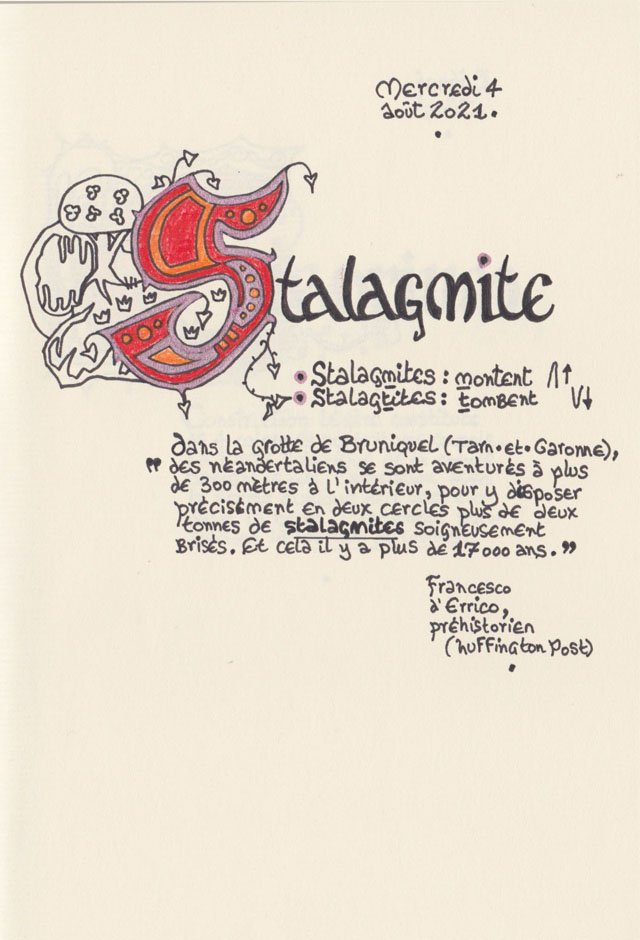 Mercredi 4
août 2021.
Stalagmite
Stalagmites : montent
Stalagtites : tombent
Dans la grotte de Bruniquel (Tarn-et-Garonne),
" des néandertaliens se sont aventurés à plus
de 300 mètres à l'intérieur, pour y disposer
précisément en deux cercles plus de deux
tonnes de stalagmites soigneusement
brisés. Et cela il y a plus de 17000 ans. "
Francesco
d'Errico,
préhistorien
(Huffington Post)